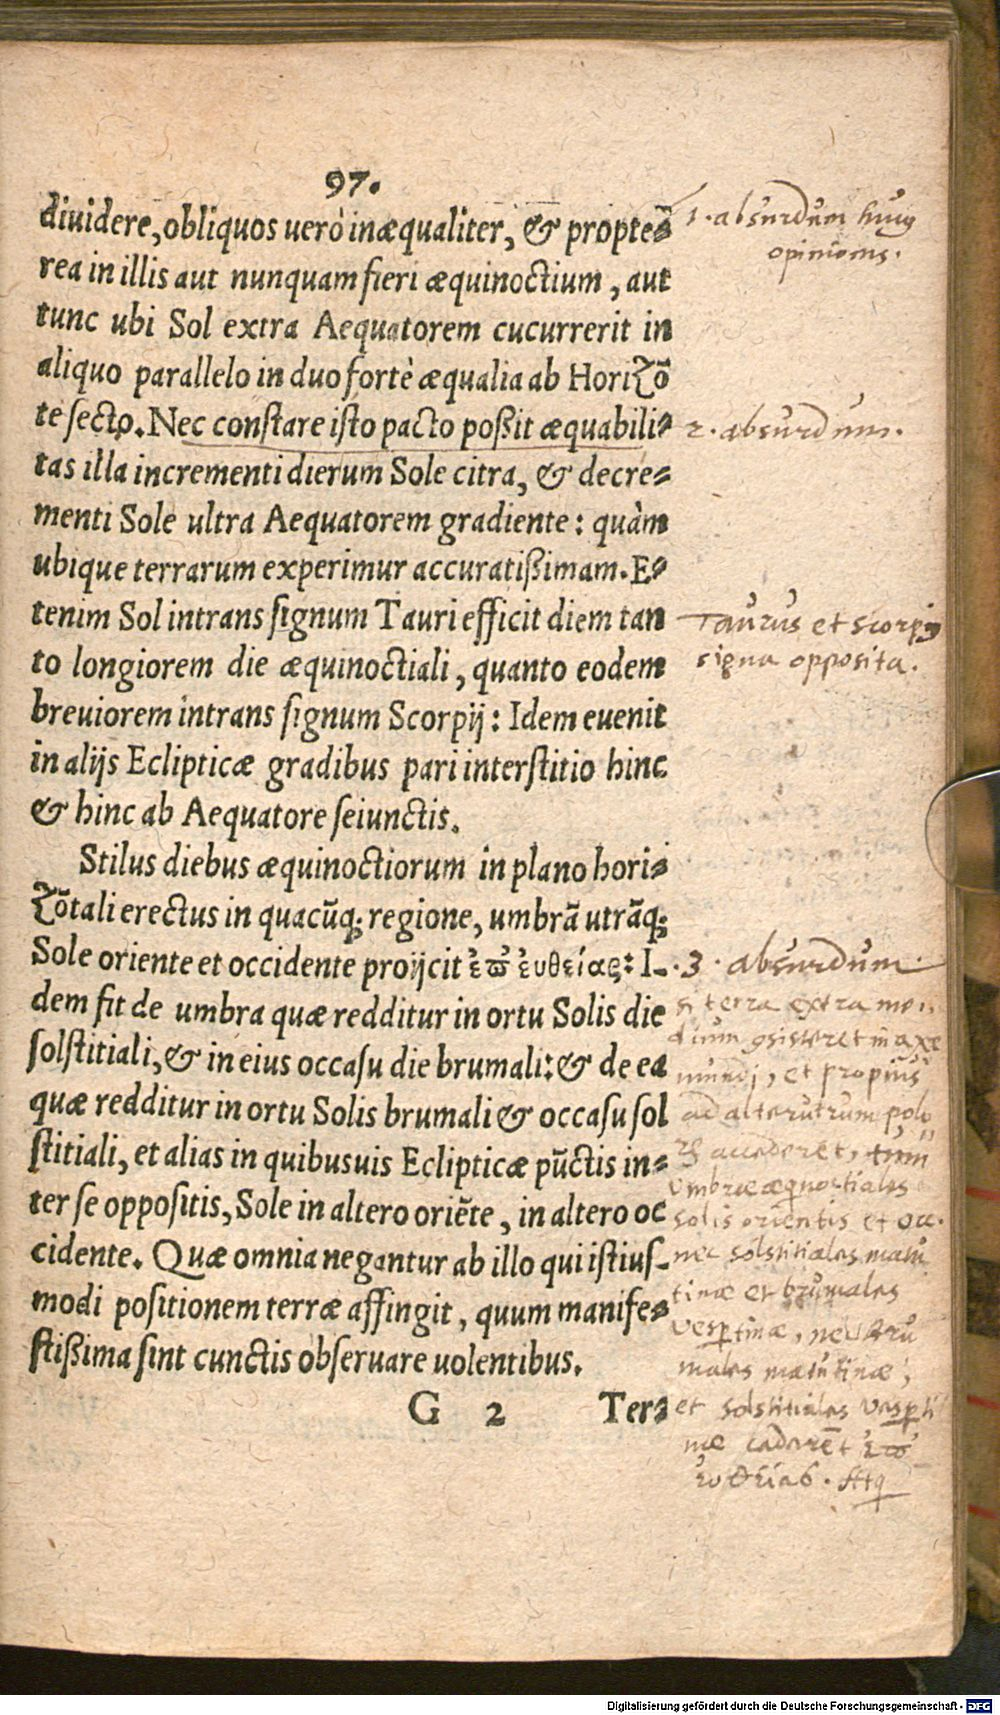 97.
diuidere, obliquos uerò inæqualiter, & propte⸗
rea in illis aut nunquam fieri æquinoctium, aut
tunc ubi Sol extra Aequatorem cucurrerit in
aliquo parallelo in duo fortè æqualia ab Horizō
te secto. Nec constare isto pacto poßit æquabili⸗
tas illa incrementi dierum Sole citra, & decre⸗
menti Sole ultra Aequatorem gradiente: quàm
ubique terrarum experimur accuratißimam. E⸗
tenim Sol intrans signum Tauri efficit diem tan
to longiorem die æquinoctiali, quanto eodem
breuiorem intrans signum Scorpij: Idem euenit
in alijs Eclipticæ gradibus pari interstitio hinc
& hinc ab Aequatore seiunctis.
Stilus diebus æquinoctiorum in plano hori⸗
zōtali erectus in quacūq; regione, umbrā utrāq;
Sole oriente et occidente proijcit ἐπ' ἐυθείας: I-
dem fit de umbra quæ redditur in ortu Solis die
solstitiali, & in eius occasu die brumali: & de ea
quæ redditur in ortu Solis brumali & occasu sol
stitiali, et alias in quibusuis Eclipticæ pūctis in⸗
ter se oppositis, Sole in altero oriēte, in altero oc
cidente. Quæ omnia negantur ab illo qui istius-
modi positionem terræ affingit, quum manife⸗
stißima sint cunctis obseruare uolentibus.
G 2 Ter⸗
1. absurdum huius
opinionis.
2. absurdum.
Taurus et scorpij
signa opposita.
3. absurdum.
si terra extra me
dium existeret in axe
mundi, et propius
ad alterutrum polo
accederet, tum
umbræ æquinoctiales
solis orientis et occ.
nec solstitiales matu
tinæ et brumales
vespertinæ, nec bru
males matutinæ,
et solstitiales vesperti
næ caderēt ἐπ'
ἐυθείας.
Digitalisierung gefördert durch die Deutsche Forschungsgemeinschaft - DFG